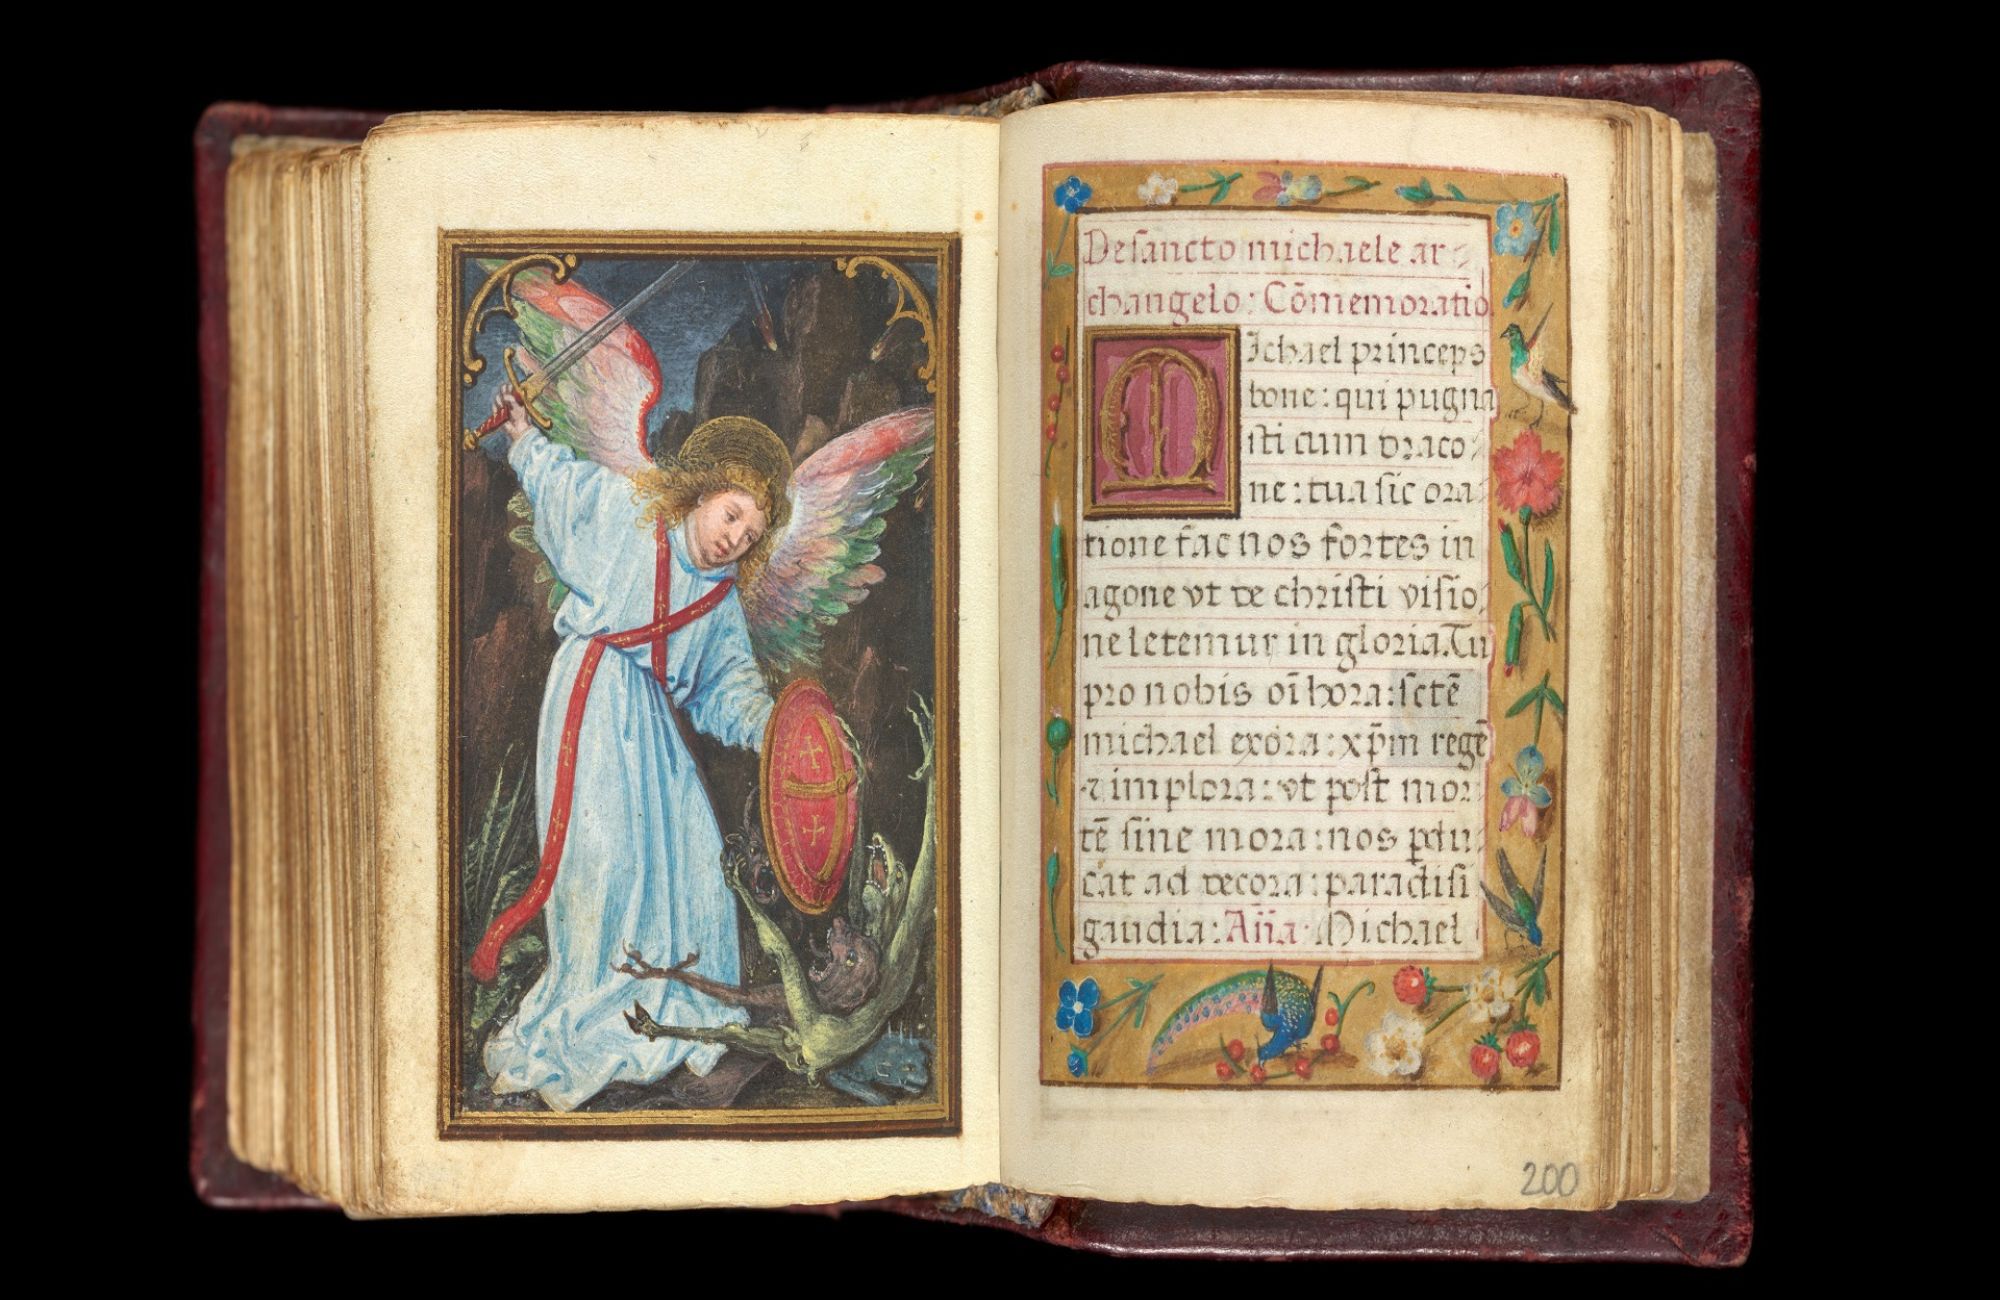 De sancto michaele ar-
changelo: Cōmemoratio
Michael princeps
bone: qui pugna
sti cum draco-
ne: tua sic ora-
tione fac nos fortes in
agone vt te christi visio-
ne letemur in gloria. Tu
pro nobis oī hora: sctē
michael exora: xp̄m regē
⁊ implora: vt post mor-
tē sine mora: nos ꝑdu-
cat ad decora: paradisi
gaudia: Añа· Michael
200